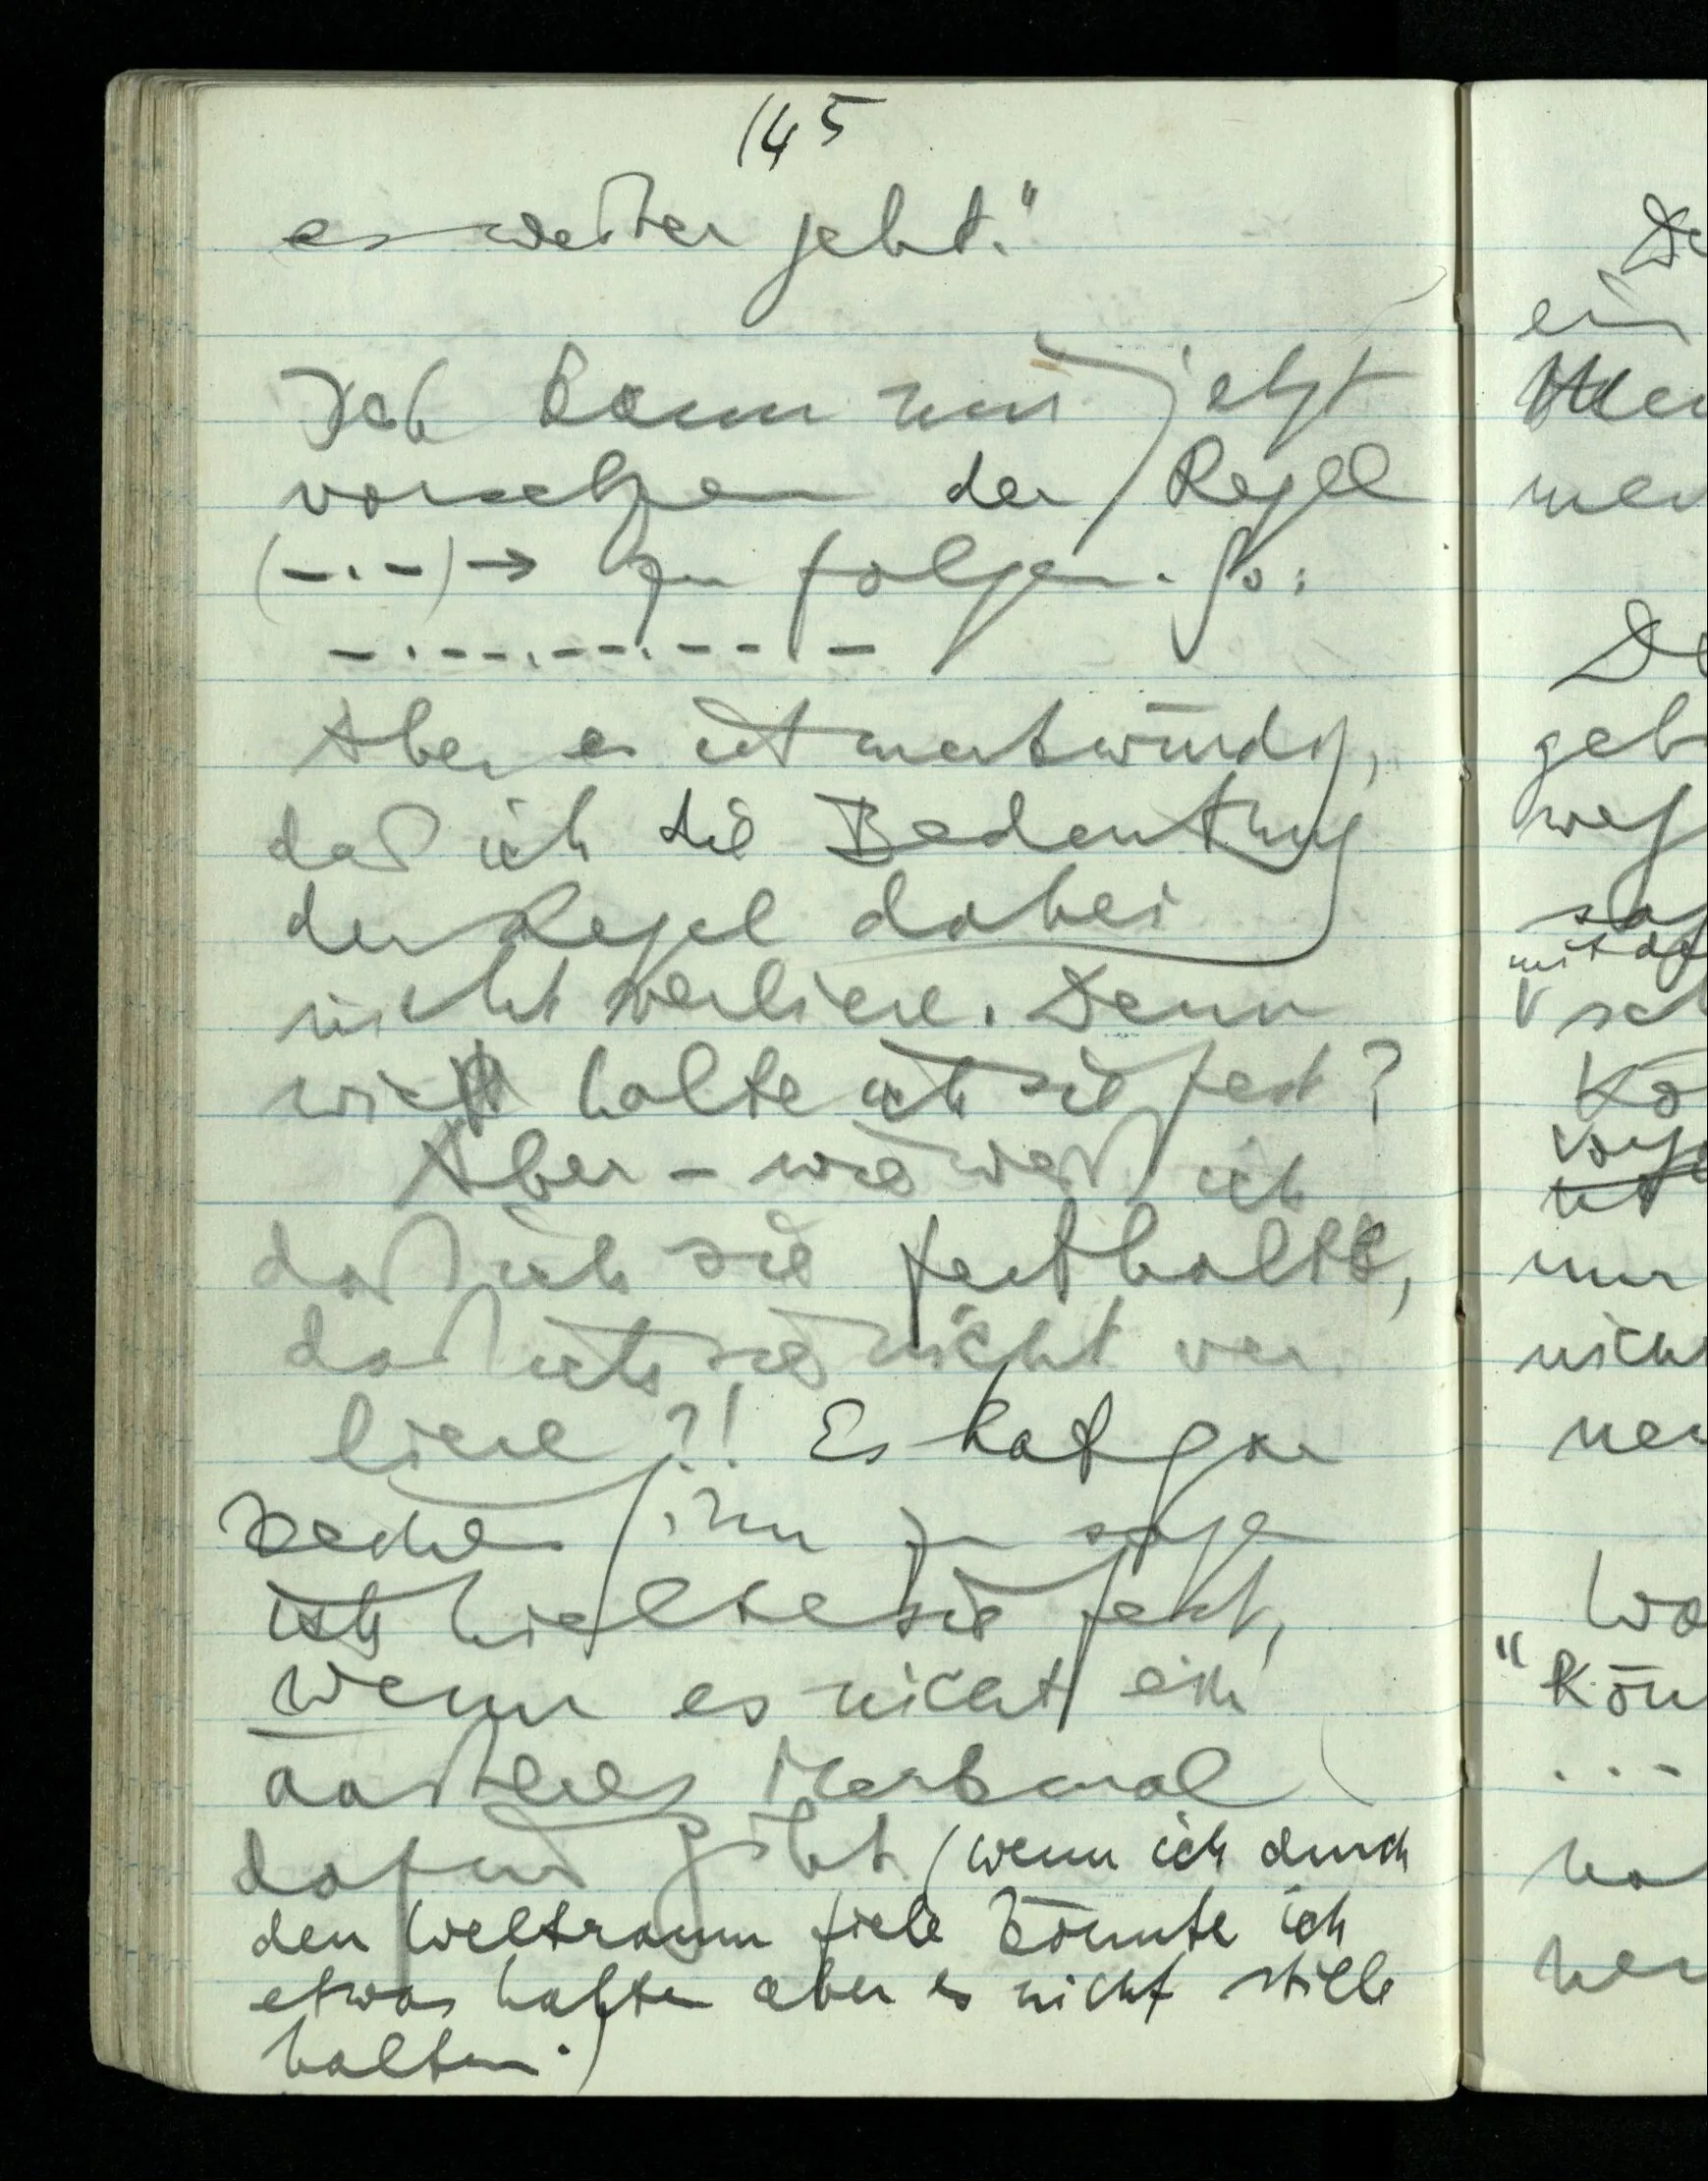 145
es weiter geht."
Ich kann mir jetzt
vorsetzen der Regel
(–·–)→ zu folgen. So:
–·––·––·––·–
Aber es ist merkwürdig,
daß ich die Bedeutung
der Regel dabei
nicht verliere. Denn
wie halte ich sie fest?
Aber – wie weiß ich
daß ich sie festhalte,
daß ich sie nicht ver
liere?! Es hat gar
keinen Sinn zu sagen
ich hielte sie fest,
wenn es nicht ein
äußeres Merkmal
dafür gibt (wenn ich durch
den Weltraum fiele könnte ich
etwas halten aber es nicht stille
halten.)